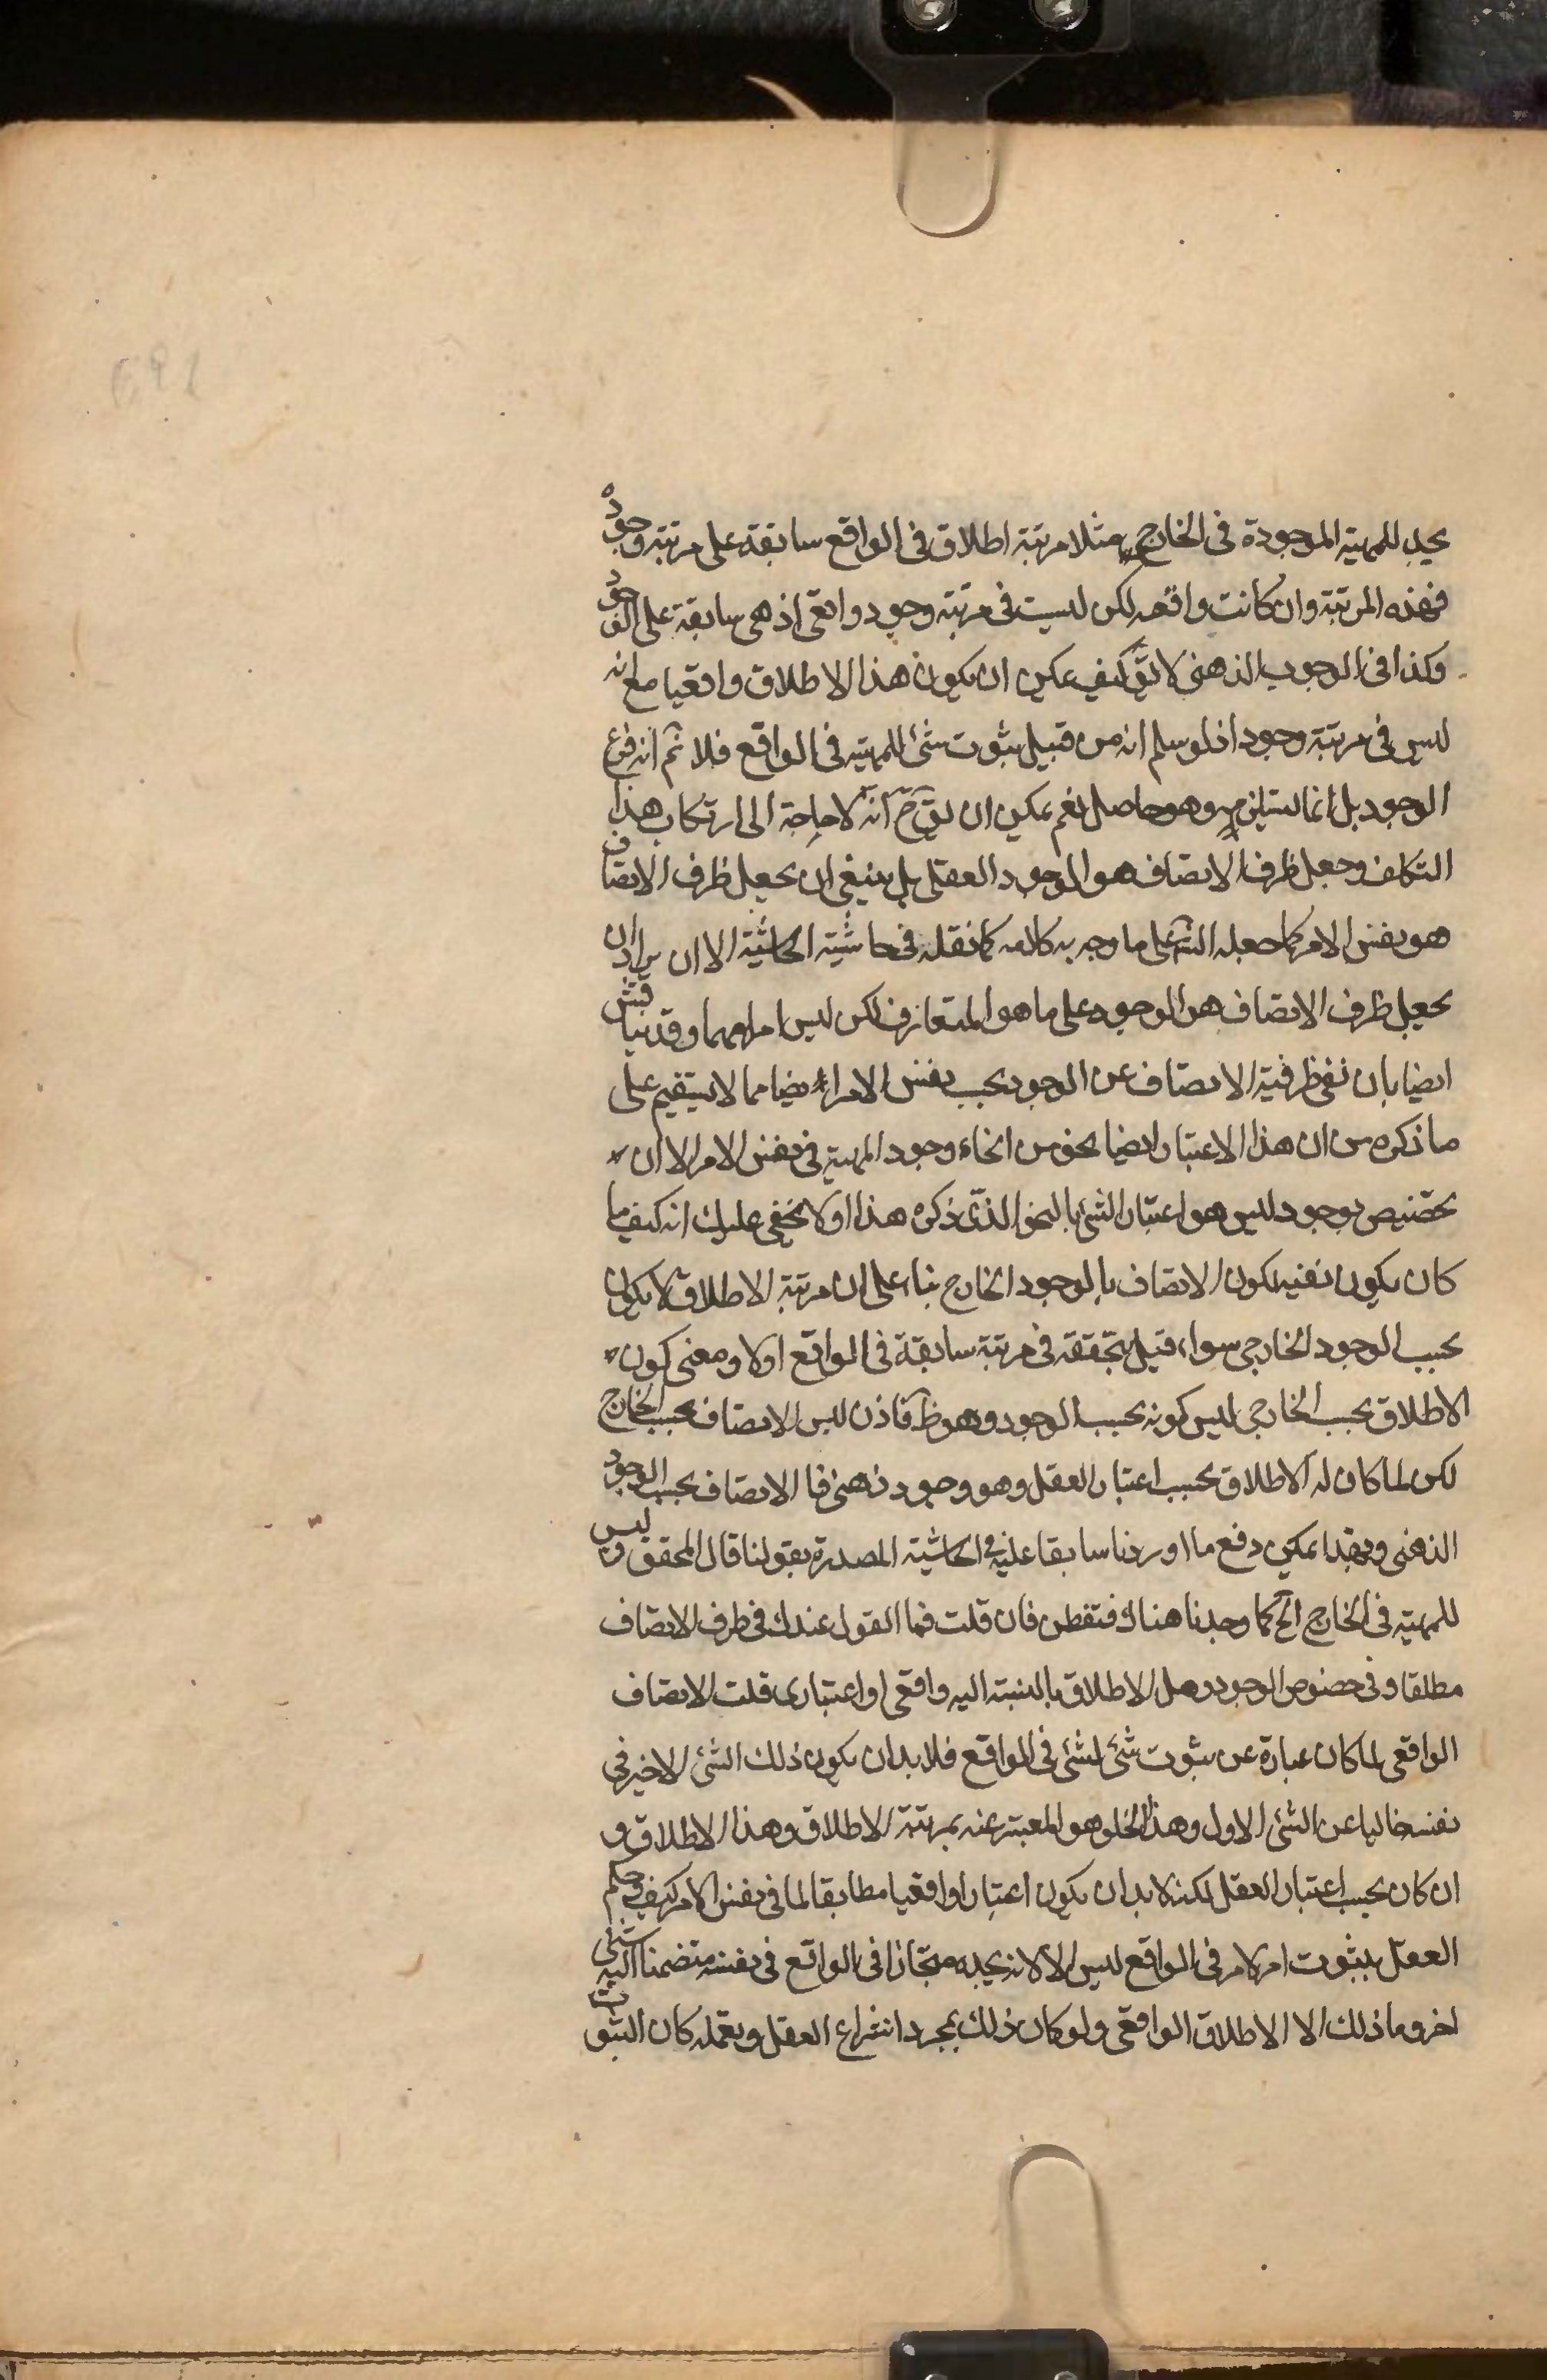 يجد للمهية الموجودة فى الخارج مثلا مرتبة اطلاق فى الواقع سابقة على مرتبة وجوده
فهذه المرتبة وان كانت واقعه لكن ليست فى مرتبة وجود واقعى اذ هى سابقة على الوجود
وكذا فى الوجود الذهنى لا يق كيف يمكن ان يكون هذا الاطلاق واقعيا مع انه
ليس فى مرتبة وجود اذ لو سلم انه من قبيل ثبوت شئ للمهية فى الواقع فلا نم انه فرع
الوجود بل انما يستلزمه وهو حاصل نعم يمكن ان يق ح انه لا حاجة الى ارتكاب هذا
التكلف وجعل ظرف الاتصاف هو الوجود العقلى بل ينبغى ان يجعل ظرف الاتصاف
هو نفس الامر كما جعله الش على ما وجه به كلامه كما نقله فى حاشية الحاشية الا ان يراد ان
يجعل ظرف الاتصاف هو الوجود على ما هو المتعارف لكن ليس امرا مهما وقد يناقش
ايضا بان نفى ظرفية الاتصاف عن الوجود بحسب نفس الامر ايضا مما لا يستقيم على
ما ذكره من ان هذا الاعتبار ايضا نحو من انحاء وجود المهية فى نفس الامر الا ان
يخصص بوجود ليس هو اعتبار الشئ بالنحو الذى ذكره هذا او لا يخفى عليك انه كيف ما
كان يكون نفيه لكون الاتصاف بالوجود الخارج بناء على ان مرتبة الاطلاق لا يكون
بحسب الوجود الخارجى سواء قيل بتحققه فى مرتبة سابقة فى الواقع اولا ومعنى كون
الاطلاق بحسب الخارجى ليس كونه بحسب الوجود وهو ظ فاذن ليس الاتصاف بحسب الخارج
لكن لما كان له الاطلاق بحسب اعتبار العقل وهو وجود ذهنى فا الاتصاف بحسب الوجود
الذهنى وبهذا يمكن دفع ما اوردنا سابقا عليه فى الحاشية المصدرة بقولنا قال المحقق وليس
للمهية فى الخارج الخ كما وجدنا هناك فتفطن فان قلت فما القول عندك فى ظرف الاتصاف
مطلقا وفى خصوص الوجود وهل الاطلاق بالنسبة اليه واقعى او اعتبارى قلت الاتصاف
الواقعى لما كان عبارة عن ثبوت شئ لشئ فى الواقع فلا بد ان يكون ذلك الشئ الاخير فى
نفسه خاليا عن الشئ الاول وهذا الخلو هو المعبر عنه بمرتبة الاطلاق وهذا الاطلاق و
ان كان بحسب اعتبار العقل لكنه لا بد ان يكون اعتبارا واقعيا مطابقا لما فى نفس الامر كيف وحكم
العقل بثبوت امر لامر فى الواقع ليس الا لانه يجده ممتازا فى الواقع فى نفسه متضمنا اليه شئ
اخر وما ذلك الا الاطلاق الواقعى ولو كان ذلك بمجرد انتزاع العقل وبعمله كان الثبوت